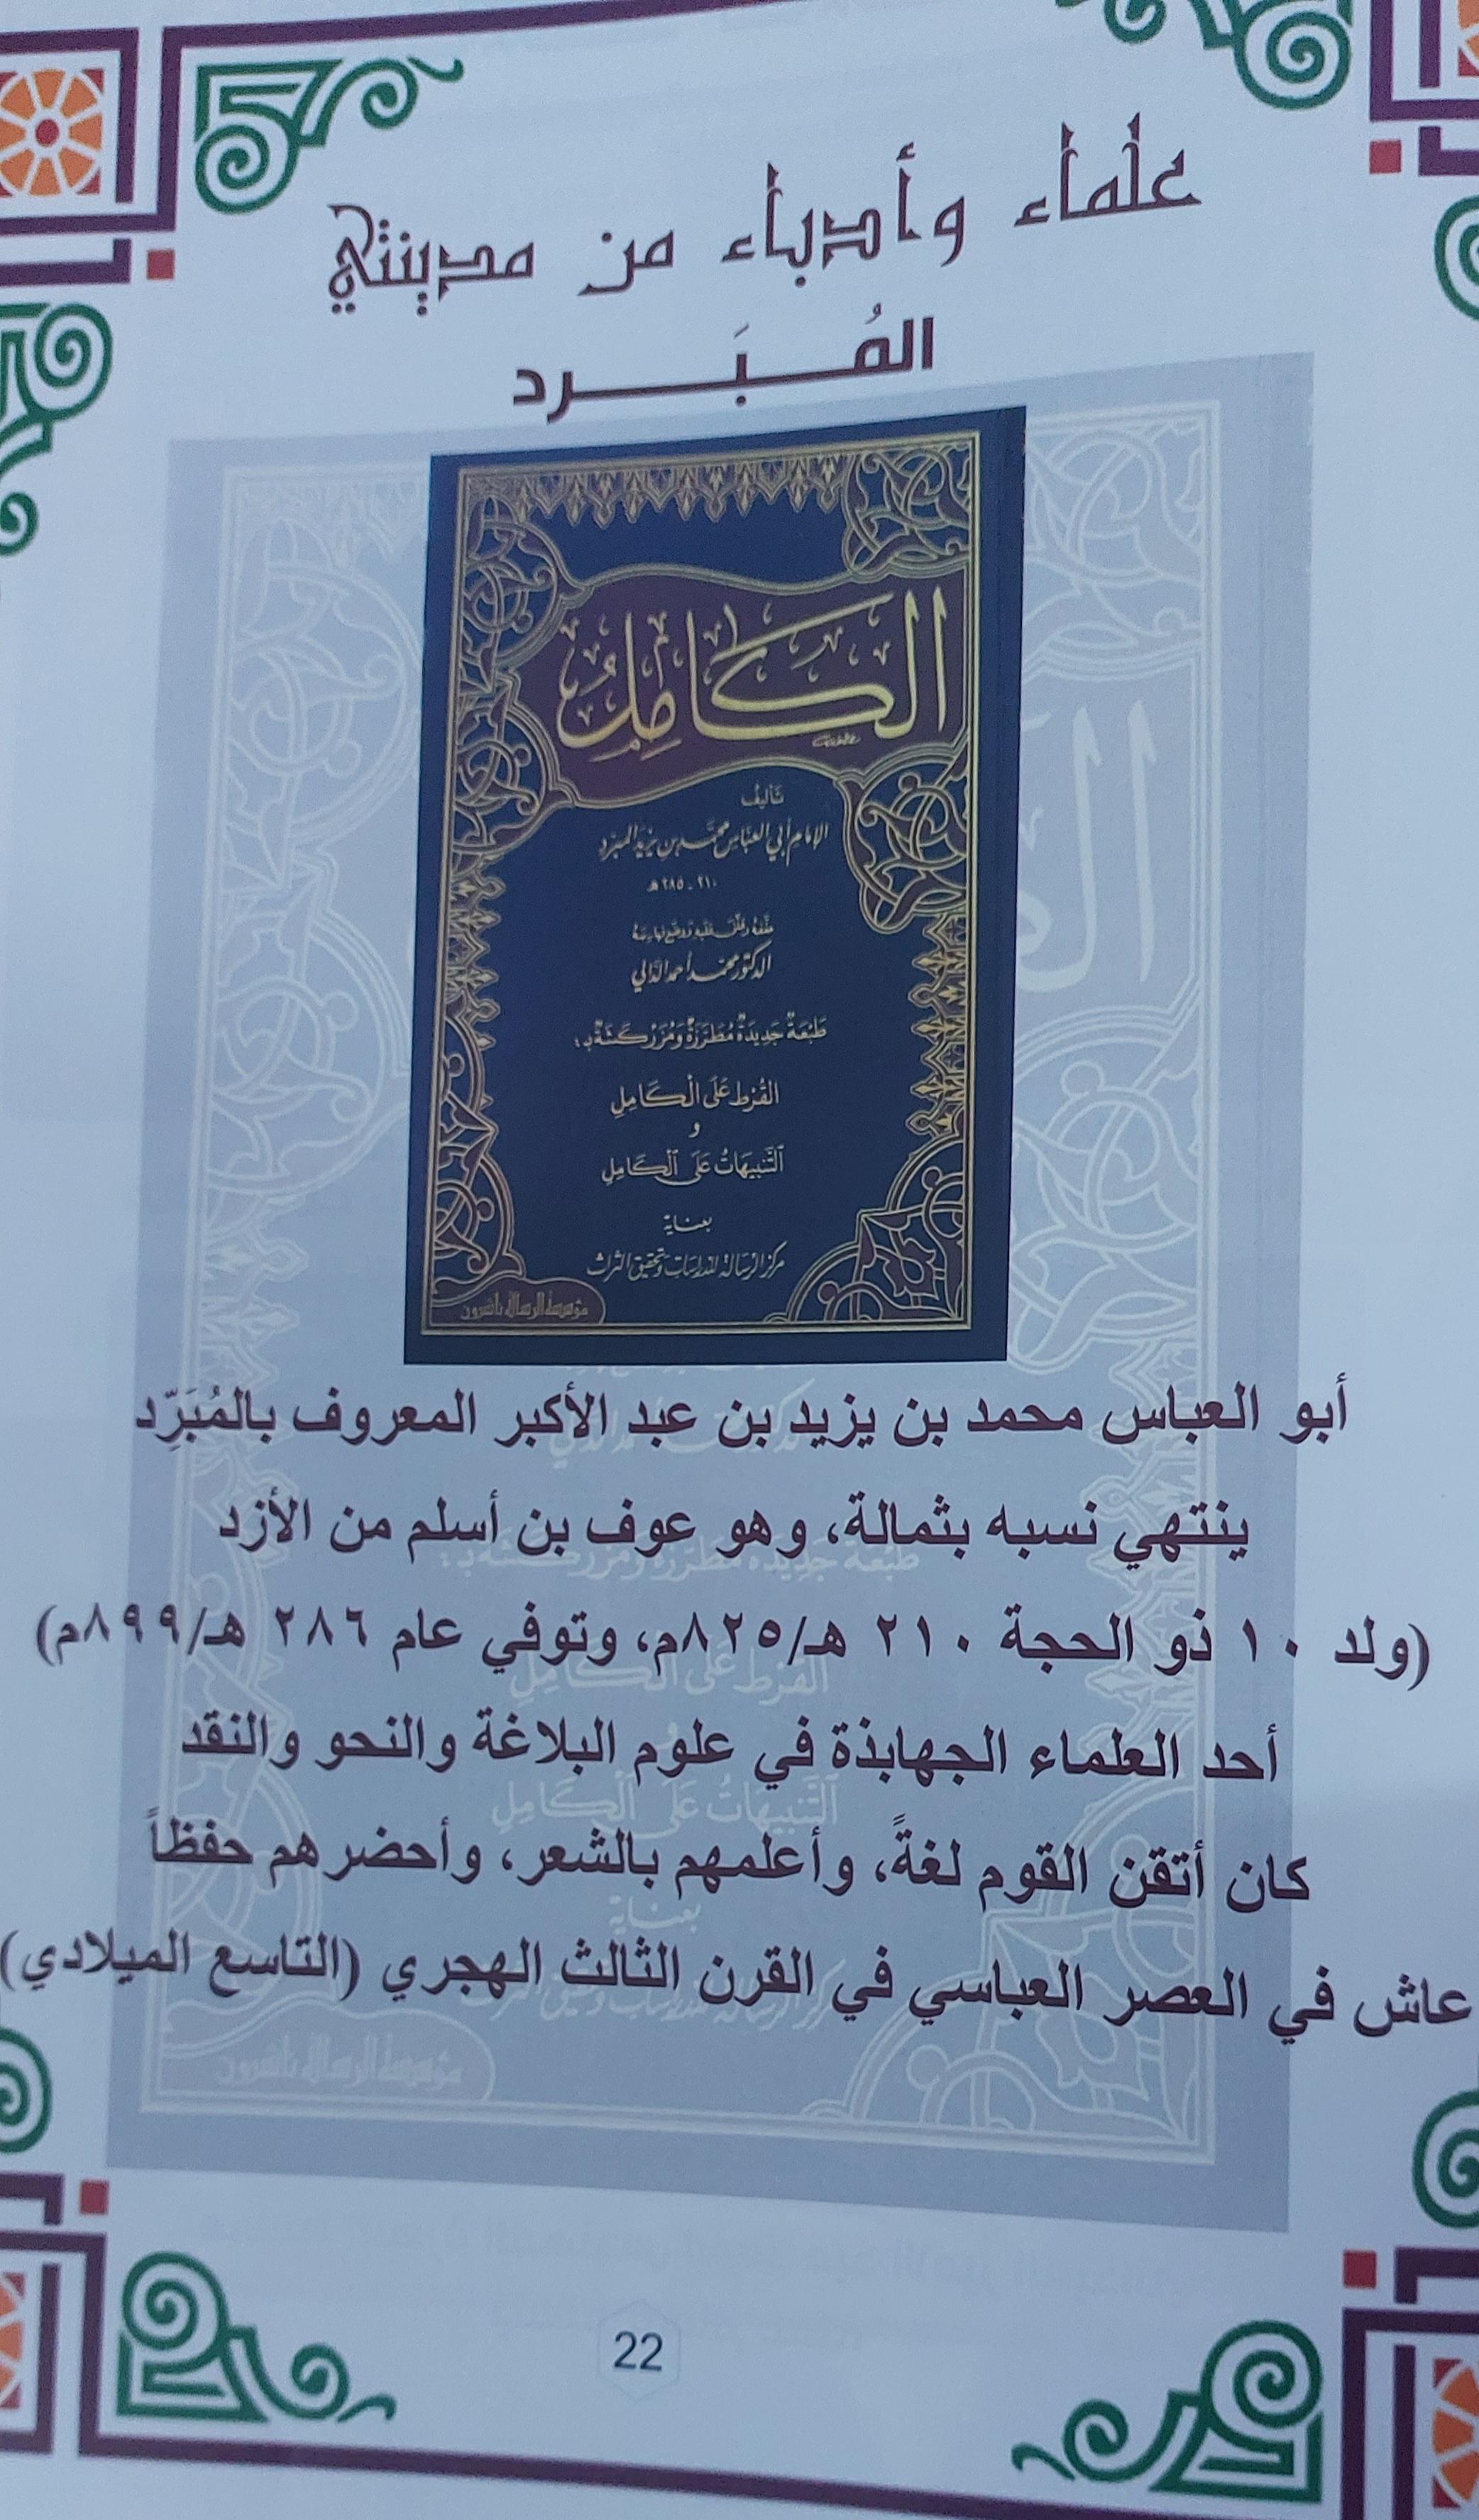 علماء وأدباء من مدينتي
المُبَرد
الكامل
تأليف
الإمام أبي العباس محمد بن يزيد المبرد
٢١٠ - ٢٨٥ هـ
حققه وعلق عليه ووضع فهارسه
الدكتور محمد أحمد الدالي
طَبْعَةٌ جَدِيدَةٌ مُطَرَّزَةٌ وَمُزَرْكَشَةٌ بـ:
القُرْط عَلَى الْكَامِلِ
و
التَّنبِيهَاتُ عَلَى الكَامِلِ
بعناية
مركز الرسالة للدراسات وتحقيق التراث
مؤسسة الرسالة ناشرون
أبو العباس محمد بن يزيد بن عبد الأكبر المعروف بالمُبَرِّد
ينتهي نسبه بثمالة، وهو عوف بن أسلم من الأزد
(ولد ١٠ ذو الحجة ٢١٠ هـ/٨٢٥م، وتوفي عام ٢٨٦ هـ/٨٩٩م)
أحد العلماء الجهابذة في علوم البلاغة والنحو والنقد
كان أتقن القوم لغةً، وأعلمهم بالشعر، وأحضرهم حفظاً
عاش في العصر العباسي في القرن الثالث الهجري (التاسع الميلادي)
22